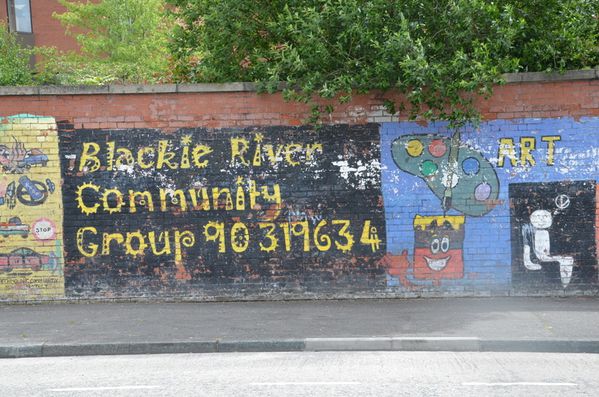 Blackie River
Community
Group 90 319634
ART
STOP